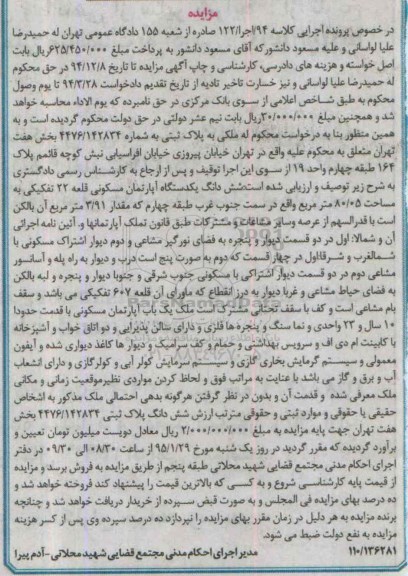 مزایده
در خصوص پرونده اجرایی کلاسه ۹۴/اجرا/۱۲۲ صادره از شعبه ۱۵۵ دادگاه عمومی تهران له حمیدرضا
علیا لواسانی و علیه مسعود دانشور که آقای مسعود دانشور به پرداخت مبلغ ۶۲۵/۴۵۰/۰۰۰ ریال بابت
اصل خواسته و هزینه های دادرسی، کارشناسی و چاپ آگهی مزایده تا تاریخ ۹۴/۱۲/۸ در حق محکوم
له حمیدرضا علیا لواسانی و نیز خسارت تاخیر تادیه از تاریخ تقدیم دادخواست ۹۴/۳/۲۸ تا یوم وصول
محکوم به طبق شاخص اعلامی از سوی بانک مرکزی در حق نامبرده که یوم الاداء محاسبه خواهد
شد و همچنین مبلغ ۳۰/۰۰۰/۰۰۰ ریال بابت نیم عشر دولتی در حق دولت محکوم گردیده است و به
همین منظور بنا به درخواست محکوم له ملکی به پلاک ثبتی به شماره ۴۴۷۶/۱۴۲۸۳۴ بخش هفت
تهران متعلق به محکوم علیه واقع در تهران خیابان پیروزی خیابان افراسیابی نبش کوچه قائمم پلاک
۱۶۴ طبقه چهارم واحد ۱۹ از سوی این اجرا توقیف و پس از ارجاع به کارشناس رسمی دادگستری
به شرح زیر توصیف و ارزیابی شده است: شش دانگ یکدستگاه آپارتمان مسکونی قطعه ۲۲ تفکیکی به
مساحت ۸۰/۰۵ متر مربع واقع در سمت جنوب غرب طبقه چهارم که مقدار ۳/۹۱ متر مربع آن بالکن
است با قدرالسهم از عرصه وسایر مشاعات و مشترکات طبق قانون تملک آپارتمانها و. آئین نامه اجرائی
آن و شمالا: اول در دو قسمت دیوار و پنجره به فضای نورگیر مشاعی و دوم دیوار اشتراک مسکونی با
شمالغرب و شرقا: اول در چهار قسمت که دوم به صورت پنج است درب و دیوار به راه پله و آسانسور
مشاعی دوم در دو قسمت دیوار اشتراکی با مسکونی جنوب شرقی و جنوبا دیوار و پنجره و لبه بالکن
به فضای حیاط مشاعی و غربا دیوار به درز انقطاع که ماورای آن قطعه ۶۰۷ تفکیکی می باشد و سقف
بام مشاعی است و کف با سقف تحتانی مشترک است ملک یک باب آپارتمان مسکونی با قدمت حدودا
۱۰ سال و ۲۳ واحدی و نما سنگ و پنجره ها فلزی و دارای سالن پذیرایی و دو اتاق خواب و آشپزخانه
با کابینت ام دی اف و سرویس بهداشتی و حمام و کف سرامیک و دیوار ها کاغذ دیواری شده و آیفون
معمولی و سیستم گرمایش بخاری گازی و سیستم سرمایش کولر آبی و کولرگازی و دارای انشعاب
آب و برق و گاز می باشد با عنایت به مراتب فوق و لحاظ کردن مواردی نظیر موقعیت زمانی و مکانی
ملک معرفی شده و قدمت آن و بدون در نظر گرفتن هرگونه بدهی احتمالی ملک مذکور به اشخاص
حقیقی یا حقوقی و موارد ثبتی و حقوقی مترتب ارزش شش دانگ پلاک ثبتی ۴۴۷۶/۱۴۲۸۳۴ بخش
هفت تهران جهت پایه مزایده به مبلغ ۲/۰۰۰/۰۰۰/۰۰۰ ریال معادل دویست میلیون تومان تعیین و
برآورد گردیده که مقرر گردید در روز یک شنبه مورخ ۹۵/۱/۲۹ از ساعت ۰۸/۳۰ الی ۰۹/۳۰ در دفتر
اجرای احکام مدنی مجتمع قضایی شهید محلاتی طبقه پنجم از طریق مزایده به فروش برسد و مزایده
از قیمت پایه کارشناسی شروع و به کسی که بالاترین قیمت را پیشنهاد کند فروخته خواهد شد و
ده درصد بهای مزایده فی المجلس و به صورت قبض سپرده از خریدار دریافت خواهد شد و چنانچه
برنده مزایده به هر دلیل در زمان مقرر بهای مزایده را نپردازد ده درصد سپرده وی پس از کسر هزینه
مزایده به نفع دولت ضبط می شود.
۱۱۰/۱۳۶۲۸۱ مدیر اجرای احکام مدنی مجتمع قضایی شهید محلاتی - آدم پیرا